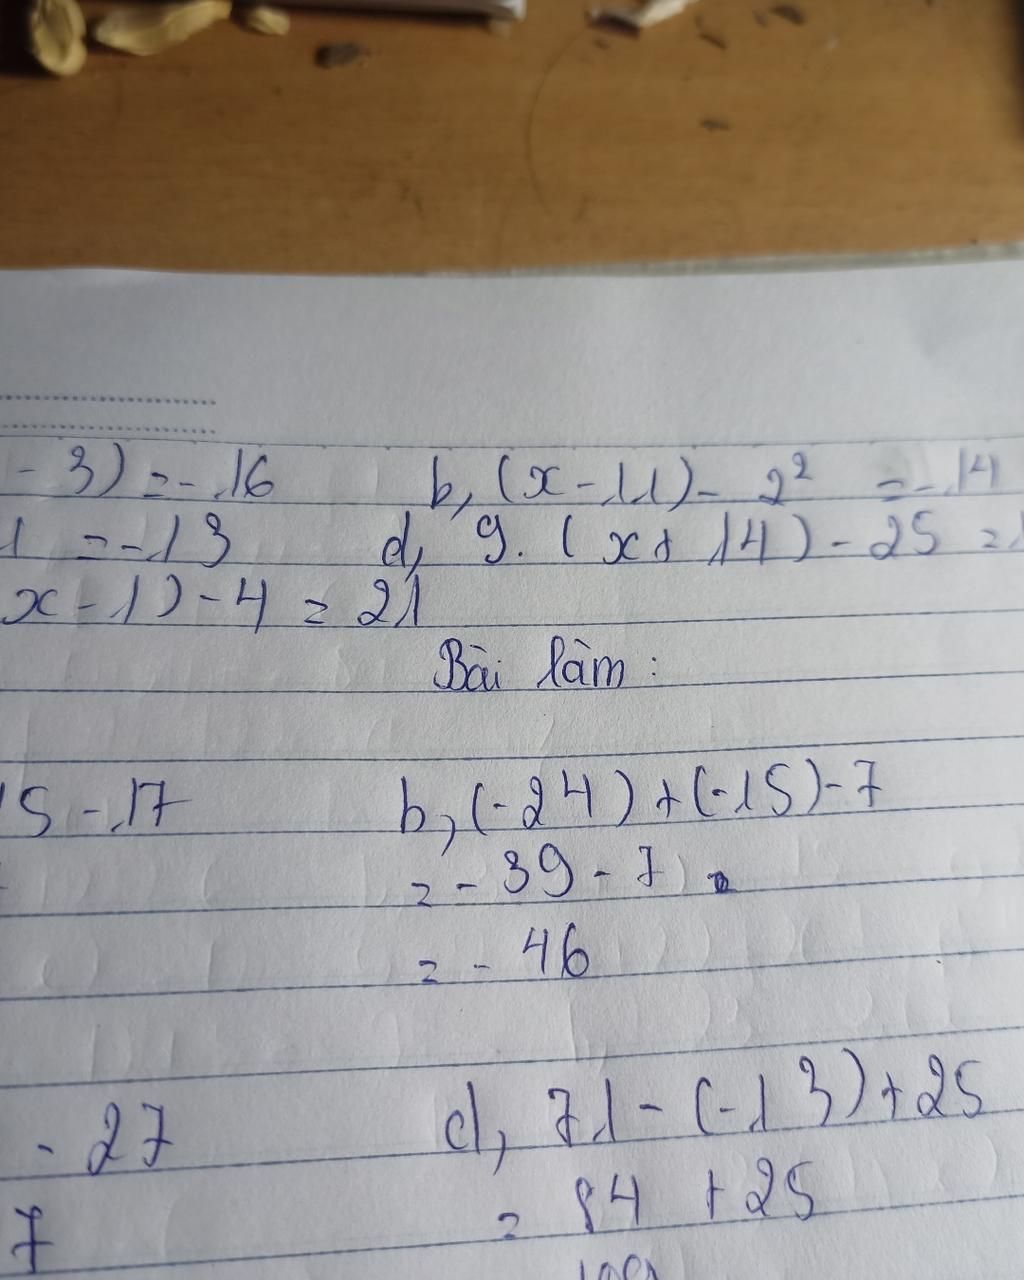 - 3) = - 16 b, (x - 11) - 2² = - 14
1 = - 13 d, 9. (x + 14) - 25 =
x - 1) - 4 = 21
Bài làm :
15 - 17 b, (-24) + (-15) - 7
= - 39 - 7
= - 46
- 27 d, 71 - (-13) + 25
7 = 84 + 25